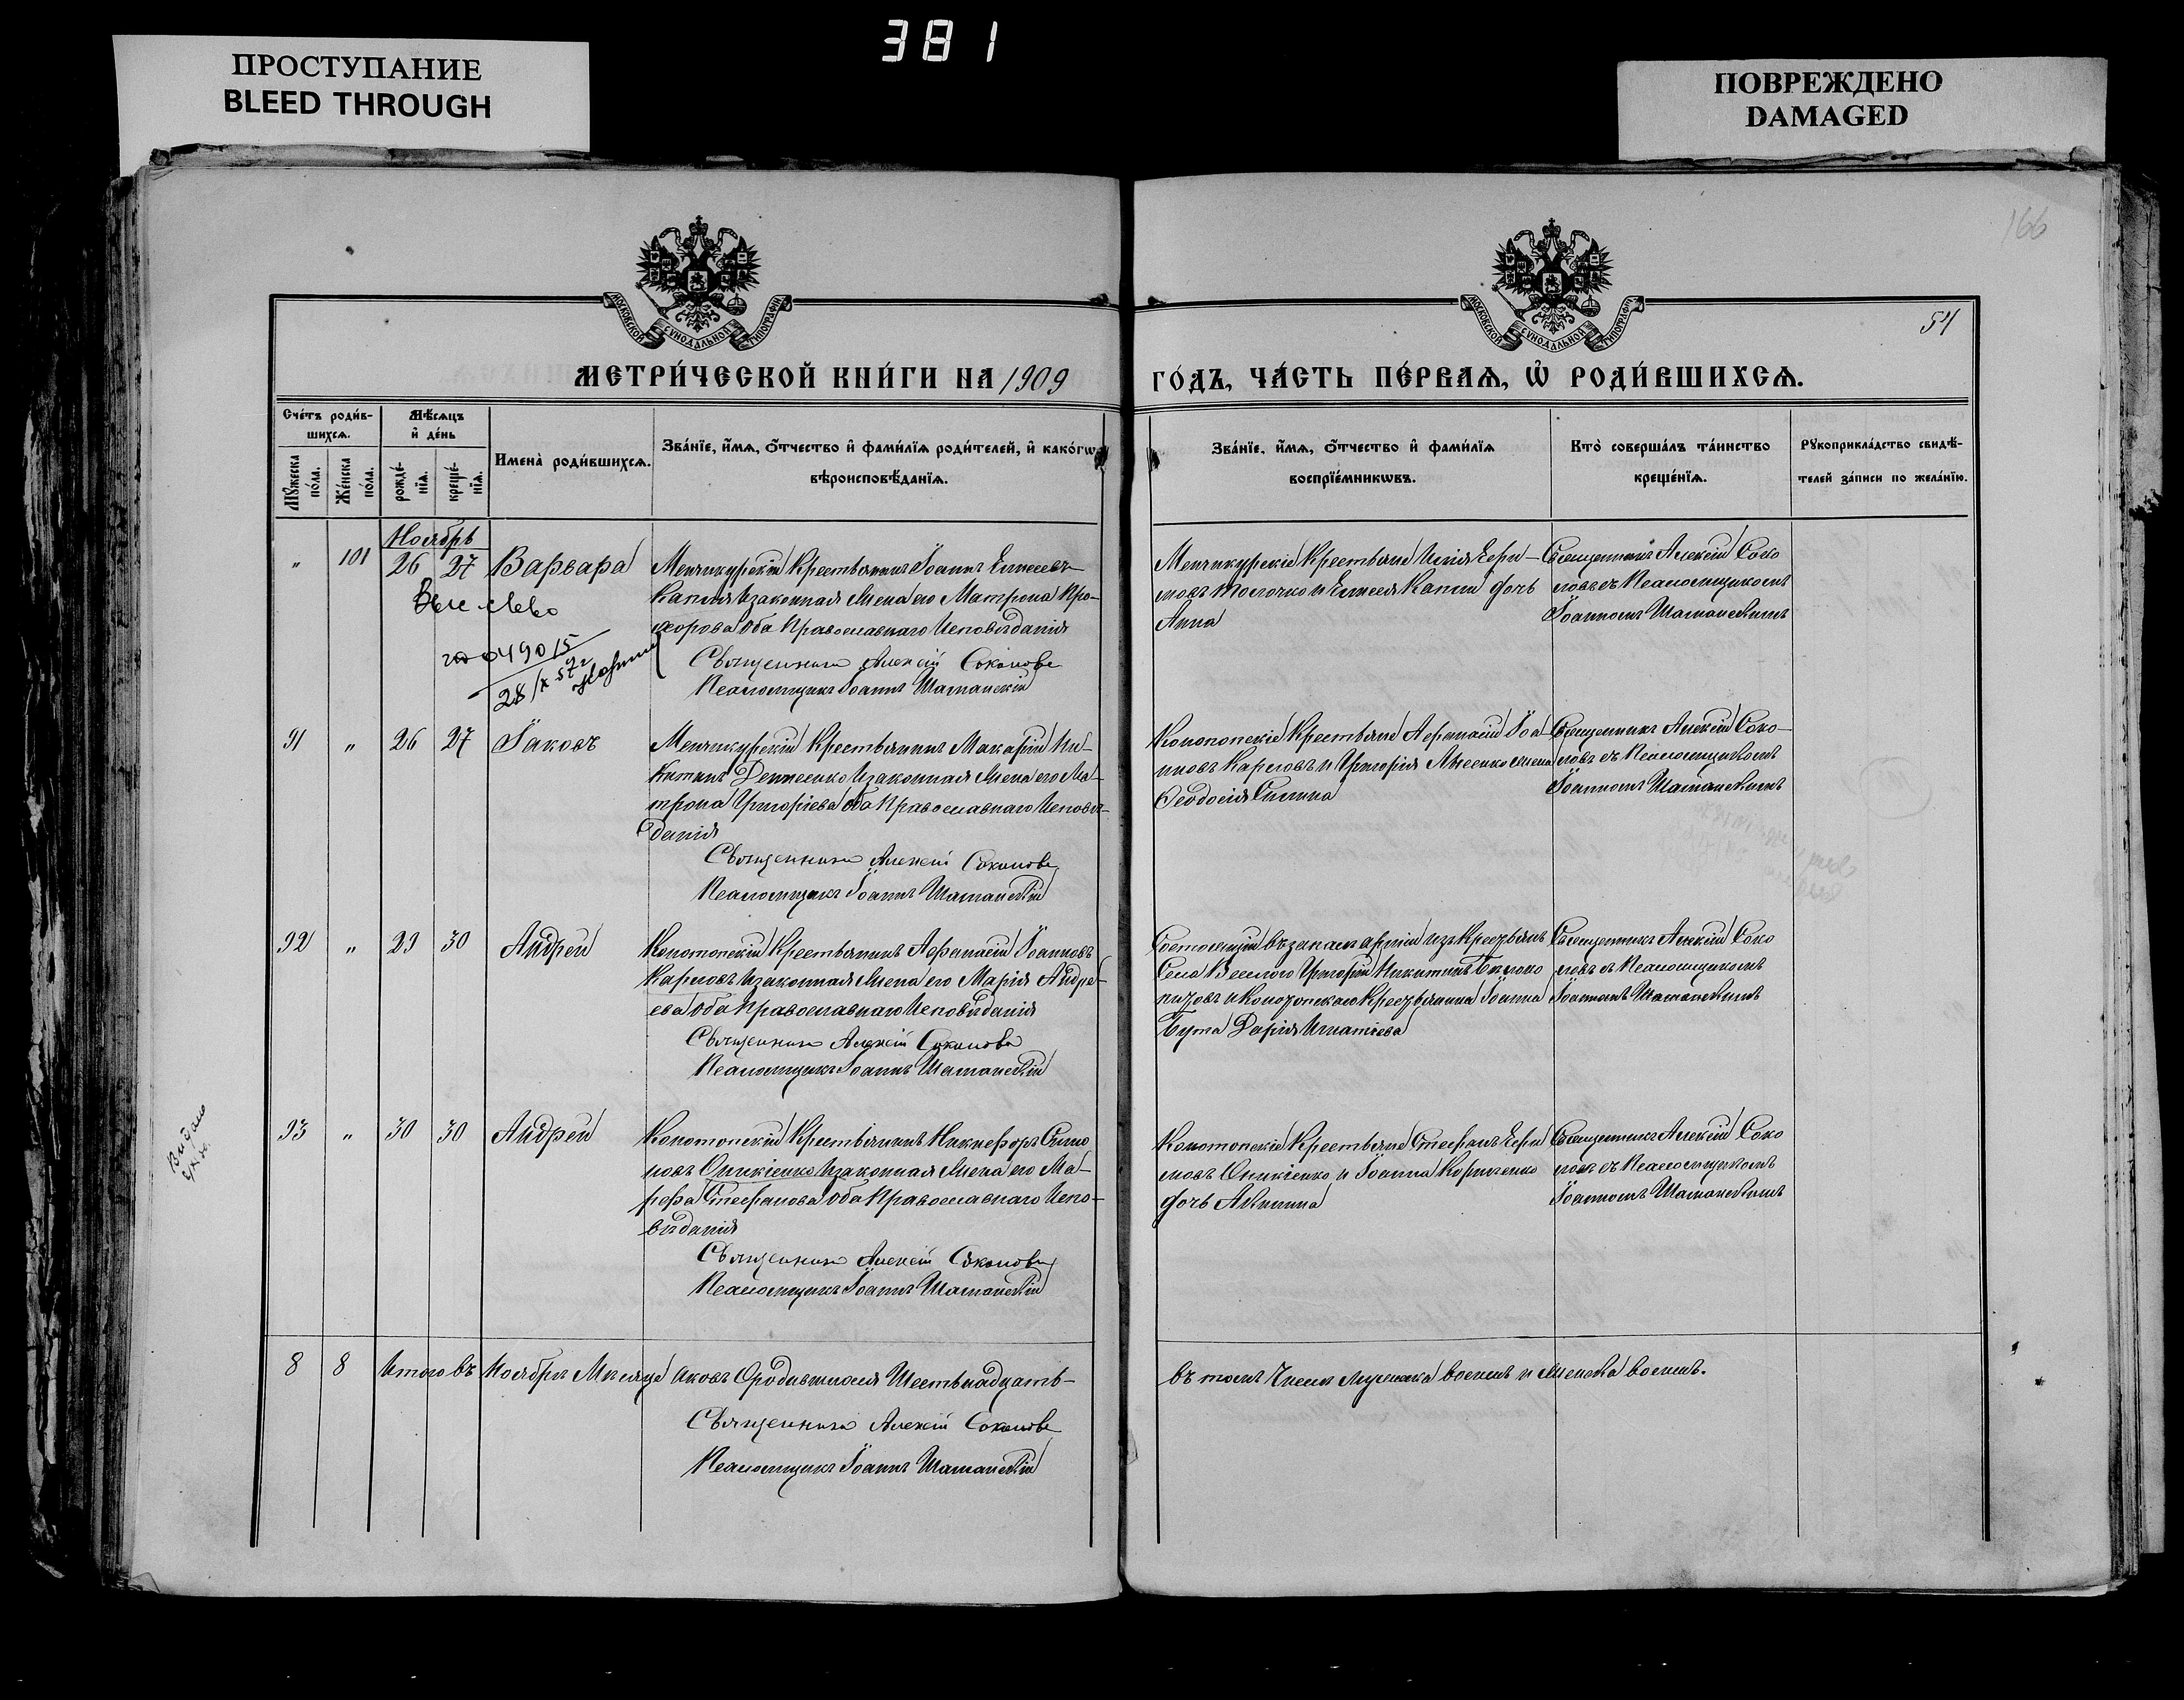 381
ПРОСТУПАНИЕ
BLEED THROUGH
ПОВРЕЖДЕНО
DAMAGED
166
54
МОСКОВСКОЙ СѴНОДАЛЬНОЙ ТИПОГРАФІИ
МОСКОВСКОЙ СѴНОДАЛЬНОЙ ТИПОГРАФІИ
МЕТРИ́ЧЕСКОЙ КНИ́ГИ НА 1909
ГО́ДЪ, ЧА́СТЬ ПЕ́РВАѦ, Ѡ҆ РОДИ́ВШИХСѦ.
Сче́тъ роди́в-
шихсѧ.
Мѣ́сѧцъ
и҆ де́нь
Мꙋжеска по́ла.
Же́нска по́ла.
рожде́-
нїѧ.
креще́-
нїѧ.
Имена̀ роди́вшихсѧ.
Зва́нїе, и҆́мѧ, ѻ҆́тчество и҆ фами́лїѧ роди́телей, и҆ како́гѡ
вѣроисповѣ́данїѧ.
Зва́нїе, и҆́мѧ, ѻ҆́тчество и҆ фами́лїѧ
воспрїе́мникѡвъ.
Кто̀ соверша́лъ та́инство
креще́нїѧ.
Рꙋкоприкла́дство свидѣ́-
телей за́писи по жела́нїю.
Ноябрь
" 101 26 27 Варвара
Менчикурскій Крестьянинъ Іоаннъ Елисеевъ
Капля и законная Жена его Матрона Про-
хорова оба Православнаго Исповѣданія
Священникъ Алексій Соколовъ
Псаломщикъ Іоаннъ Шаманскій
Менчикурскіе Крестьяне Илія Ефи-
мовъ Толочко и Елисея Капли дочь
Анна
Священникъ Алексій Соко
ловъ съ Псаломщикомъ
Іоанномъ Шаманскимъ
049015
28/X-57г
91 " 26 27 Іаковъ
Менчикурскій Крестьянинъ Макарій Ни-
китинъ Денисенко и законная Жена его Ма-
трона Григоріева оба Православнаго Исповѣ-
данія
Священникъ Алексій Соколовъ
Псаломщикъ Іоаннъ Шаманскій
Конотопскіе Крестьяне Афанасій Іоа-
нновъ Карповъ и Григорія Лысенко жена
Феодосія
Священникъ Алексій Соко-
ловъ съ Псаломщикомъ
Іоанномъ Шаманскимъ
92 " 29 30 Андрей
Конотопскій Крестьянинъ Афанасій Іоанновъ
Карповъ и законная Жена его Марія Андре-
ева оба Православнаго Исповѣданія
Священникъ Алексій Соколовъ
Псаломщикъ Іоаннъ Шаманскій
Состоящій въ запасѣ арміи изъ Крестьянъ
Села Веселого Григорій Никитинъ
и Конотопскаго Крестьянина Іоанна
Бута Дарія Игнатіева
Священникъ Алексій Соко
ловъ съ Псаломщикомъ
Іоанномъ Шаманскимъ
93 " 30 30 Андрей
Конотопскій Крестьянинъ Никифоръ Симо
новъ Оникіенко и законная Жена его Ма-
рфа Стефанова оба Православнаго Испо-
вѣданія
Священникъ Алексій Соколовъ
Псаломщикъ Іоаннъ Шаманскій
Конотопскіе Крестьяне Стефанъ Ефи
мовъ Оникіенко и Іоанна Корниенко
дочь Акилина
Священникъ Алексій Соко
ловъ съ Псаломщикомъ
Іоанномъ Шаманскимъ
Видано
8 8 Итого въ Ноябрѣ Мѣсяцѣ Родившихся Шестьнадцать-
въ томъ Числѣ Мужеска восемь и Женска восемь.
Священникъ Алексій Соколовъ
Псаломщикъ Іоаннъ Шаманскій